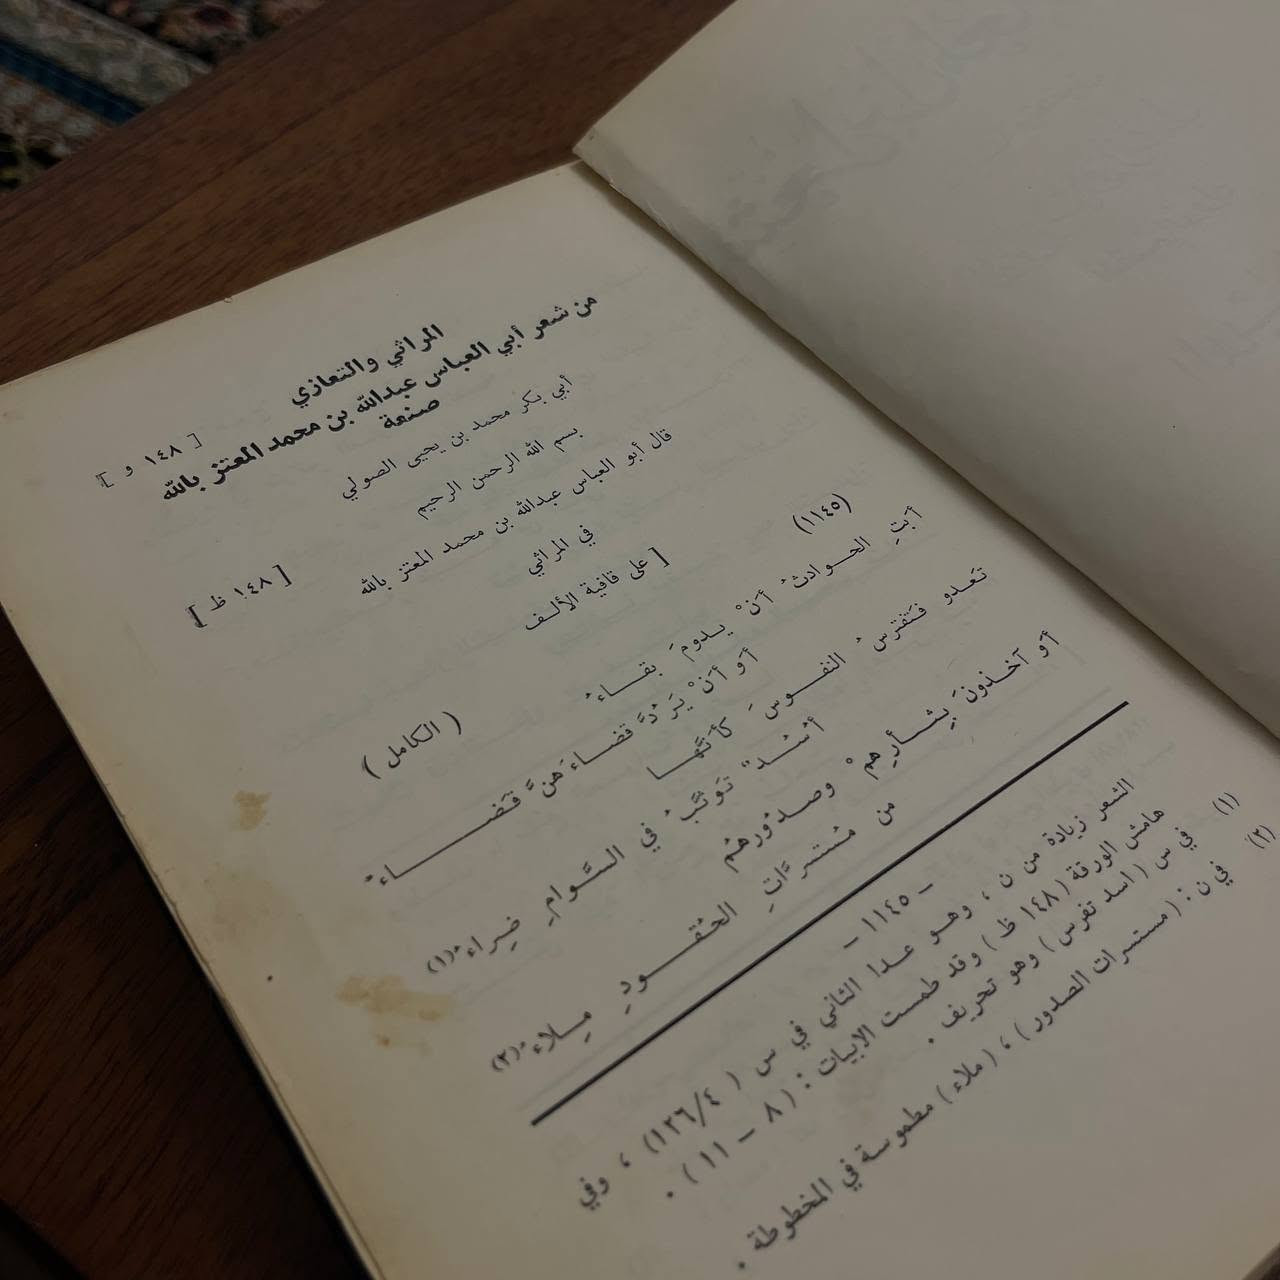 [ ١٤٨ و ]
المراثي والتعازي
من شعر أبي العباس عبدالله بن محمد المعتز بالله
صنعة
أبي بكر محمد بن يحيى الصولي
بسم الله الرحمن الرحيم
[ ١٤٨ ظ ]
قال أبو العباس عبدالله بن محمد المعتز بالله
في المراثي
[ على قافية الألف
(١١٤٥)
( الكامل )
أبَتِ الحوادثُ أنْ يدومَ بقاءُ
أو أنْ يَرُدَّ قضاءَهنَّ قَضاءُ
تَعدو فتَفترسُ النفوسَ كأنَّها
أُسُدٌ تَوثَّبُ في السَّوامِ ضِراءُ(١)
أو آخذونَ بِثأرِهِمْ وصدُورهُم
من مُستسرَّاتِ الحُقودِ مِلاءُ(٢)
– ١١٤٥ –
الشعر زيادة من ن ، وهو عدا الثاني في س ( ١٢٦/٤) ، وفي
هامش الورقة ( ١٤٨ ظ ) وقد طمست الابيات : ( ٨ – ١١ ) .
(١) في س ( اسد تفرس ) وهو تحريف .
(٢) في ن : ( مستسرات الصدور ) ، ( ملاء ) مطموسة في المخطوطة .